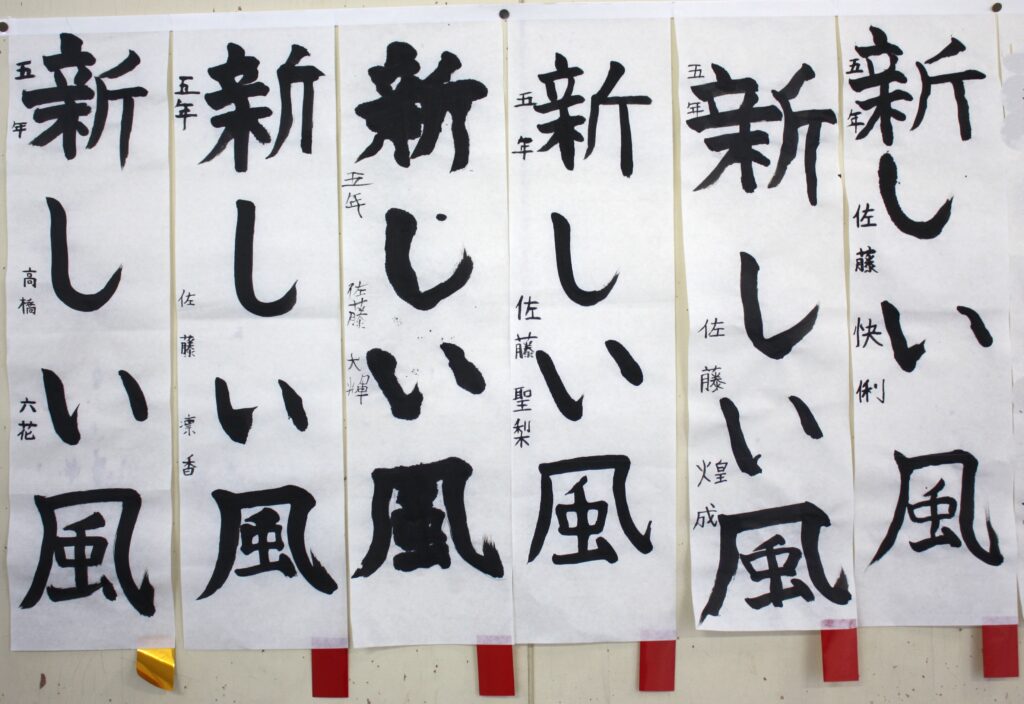 新しい風
五年 佐藤 快俐
新しい風
五年 佐藤 煌成
新しい風
五年 佐藤 聖梨
新しい風
五年 佐藤 大輝
新しい風
五年 佐藤 凛香
新しい風
五年 高橋 六花